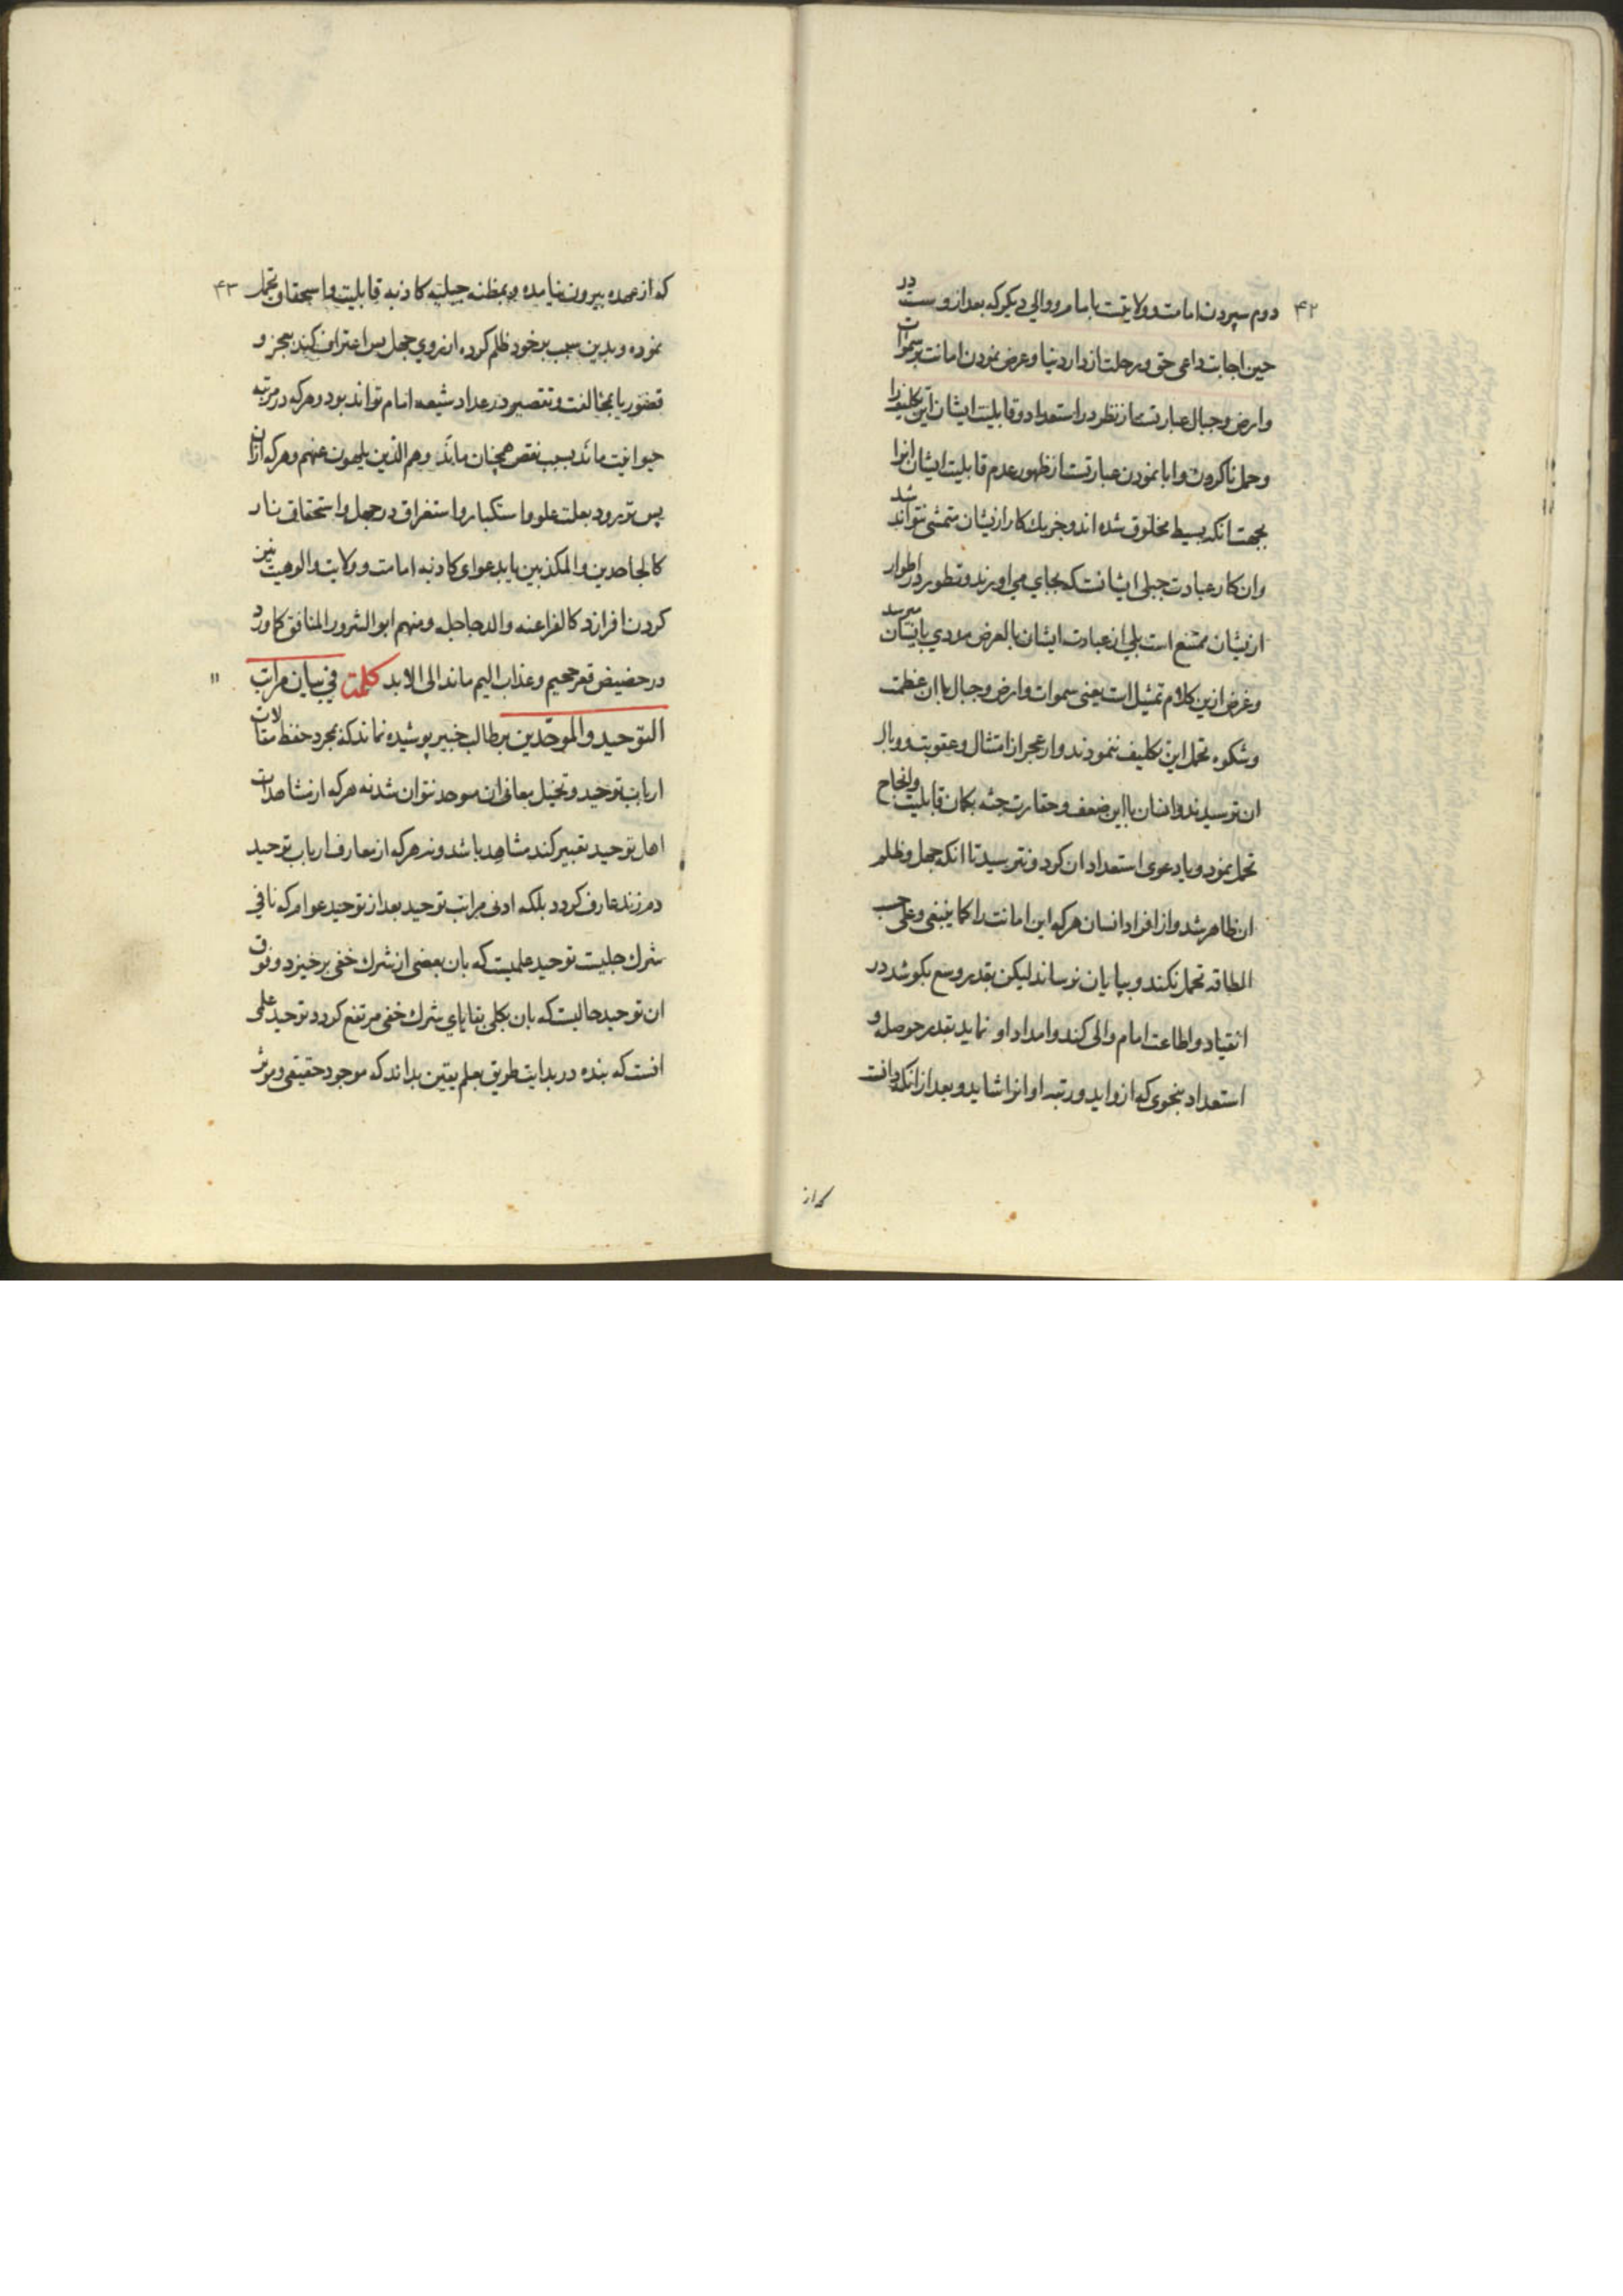 ۴۲
دوم سپردن امامت و ولایتست بامام و والی دیگر که بعد ازوست در
حین اجابت داعی حق و رحلت از دار دنیا و عرض نمودن امانت بر سموات
وارض و جبال عبارتست از نظر در استعداد و قابلیت ایشان این تکلیف را
و حمل ناکردن و ابا نمودن عبارتست از ظهور عدم قابلیت ایشان انرا
بجهت انکه بسیط مخلوق شده اند و جز یک کار ازیشان متمشی نتواند شد
وان کار عبادت جبلی ایشانست که بجای می اورند و تطور در اطوار
ازیشان ممتنع است بلی از عبادت ایشان بالعرض مددی بانیشان میرسد
و غرض ازین کلام تمثیل است یعنی سموات و ارض و جبال با ان عظمت
و شکوه تحمل این تکلیف ننمودند و از عجز از امتثال و عقوبت و وبال
ان ترسیدند و انسان با این ضعف و حقارت جثه بکمان قابلیت و انجاح
تحمل نمود و یا دعوی استعداد ان کرد و نترسید تا انکه جهل و ظلم
ان ظاهر شد و از افراد انسان هر که این امانت را کما ینبغی و علی حسب
الطاقه تحمل نکند و بپایان نرساند لیکن بقدر وسع بکوشد در
انقیاد و اطاعت امام و الی کند و امداد او نماید بقدر حوصله و
استعداد بنحوی که ازو اید و رتبه او انرا شاید و بعد از انکه دانست
که از
۴۳
که از عهده بیرون نیامده و بمظنه جبلیه کاذبه قابلیت و استحقاق تحمل
نموده و بدین سبب بر خود ظلم کرده از روی جهل پس اعتراف کند بعجز و
قصور یا بمخالفت و تقصیر در عداد شیعه امام تواند بود و هر که در مرتبه
حیوانیت ماند بسبب نقص همچنان ماند وهم الذین یلهون عنهم و هر که ازان
پس تر رود بعلت علو و استکبار و استغراق در جهل و استحقاق نار
کالجاحدین و المکذبین یا بدعوای کاذبه امامت و ولایت و الوهیت نیز
کردن افرازد کالفراعنه و الدجاجله و منهم ابو الشرور المنافق کما ورد
در حضیض قعر جحیم و عذاب الیم ماند الی الابد کلمة فی بیان مراتب
التوحید و الموحّدین بر طالب خبیر پوشیده نماند که بمجرد حفظ مقالات
ارباب توحید و تخیل معانی ان موحد نتوان شد نه هر که از مشاهدات
اهل توحید تعبیر کند مشاهد باشد و نه هر که از معارف ارباب توحید
دم زند عارف کردد بلکه ادنی مراتب توحید بعد از توحید عوام که نافی
شرک جلیست توحید علمیست که بان بعضی از شرک خفی برخیزد و فوق
ان توحید حالیست که بان بکلی بقایای شرک خفی مرتفع کردد توحید علمی
انست که بنده در بدایت طریق بعلم یقین بداند که موجود حقیقی و موثر